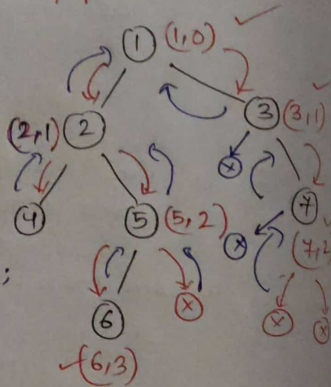 1 (1,0)
(2,1) 2 3 (3,1)
x
4 5 (5,2) x 7
(7,2
;
6 x x x
(6,3)